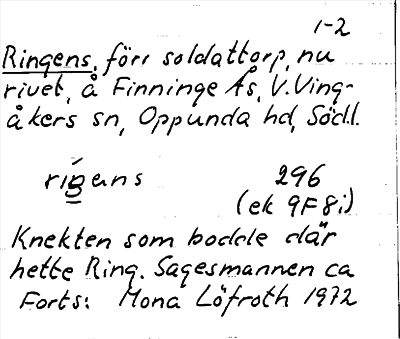 1-2
Ringens, förr soldattorp, nu
rivet, å Finninge Ås, V. Ving-
åkers sn, Oppunda hd, Södl.
rigens 296
(ek 9F8i)
Knekten som bodde där
hette Ring. Sagesmannen ca
Forts: Mona Löfroth 1972